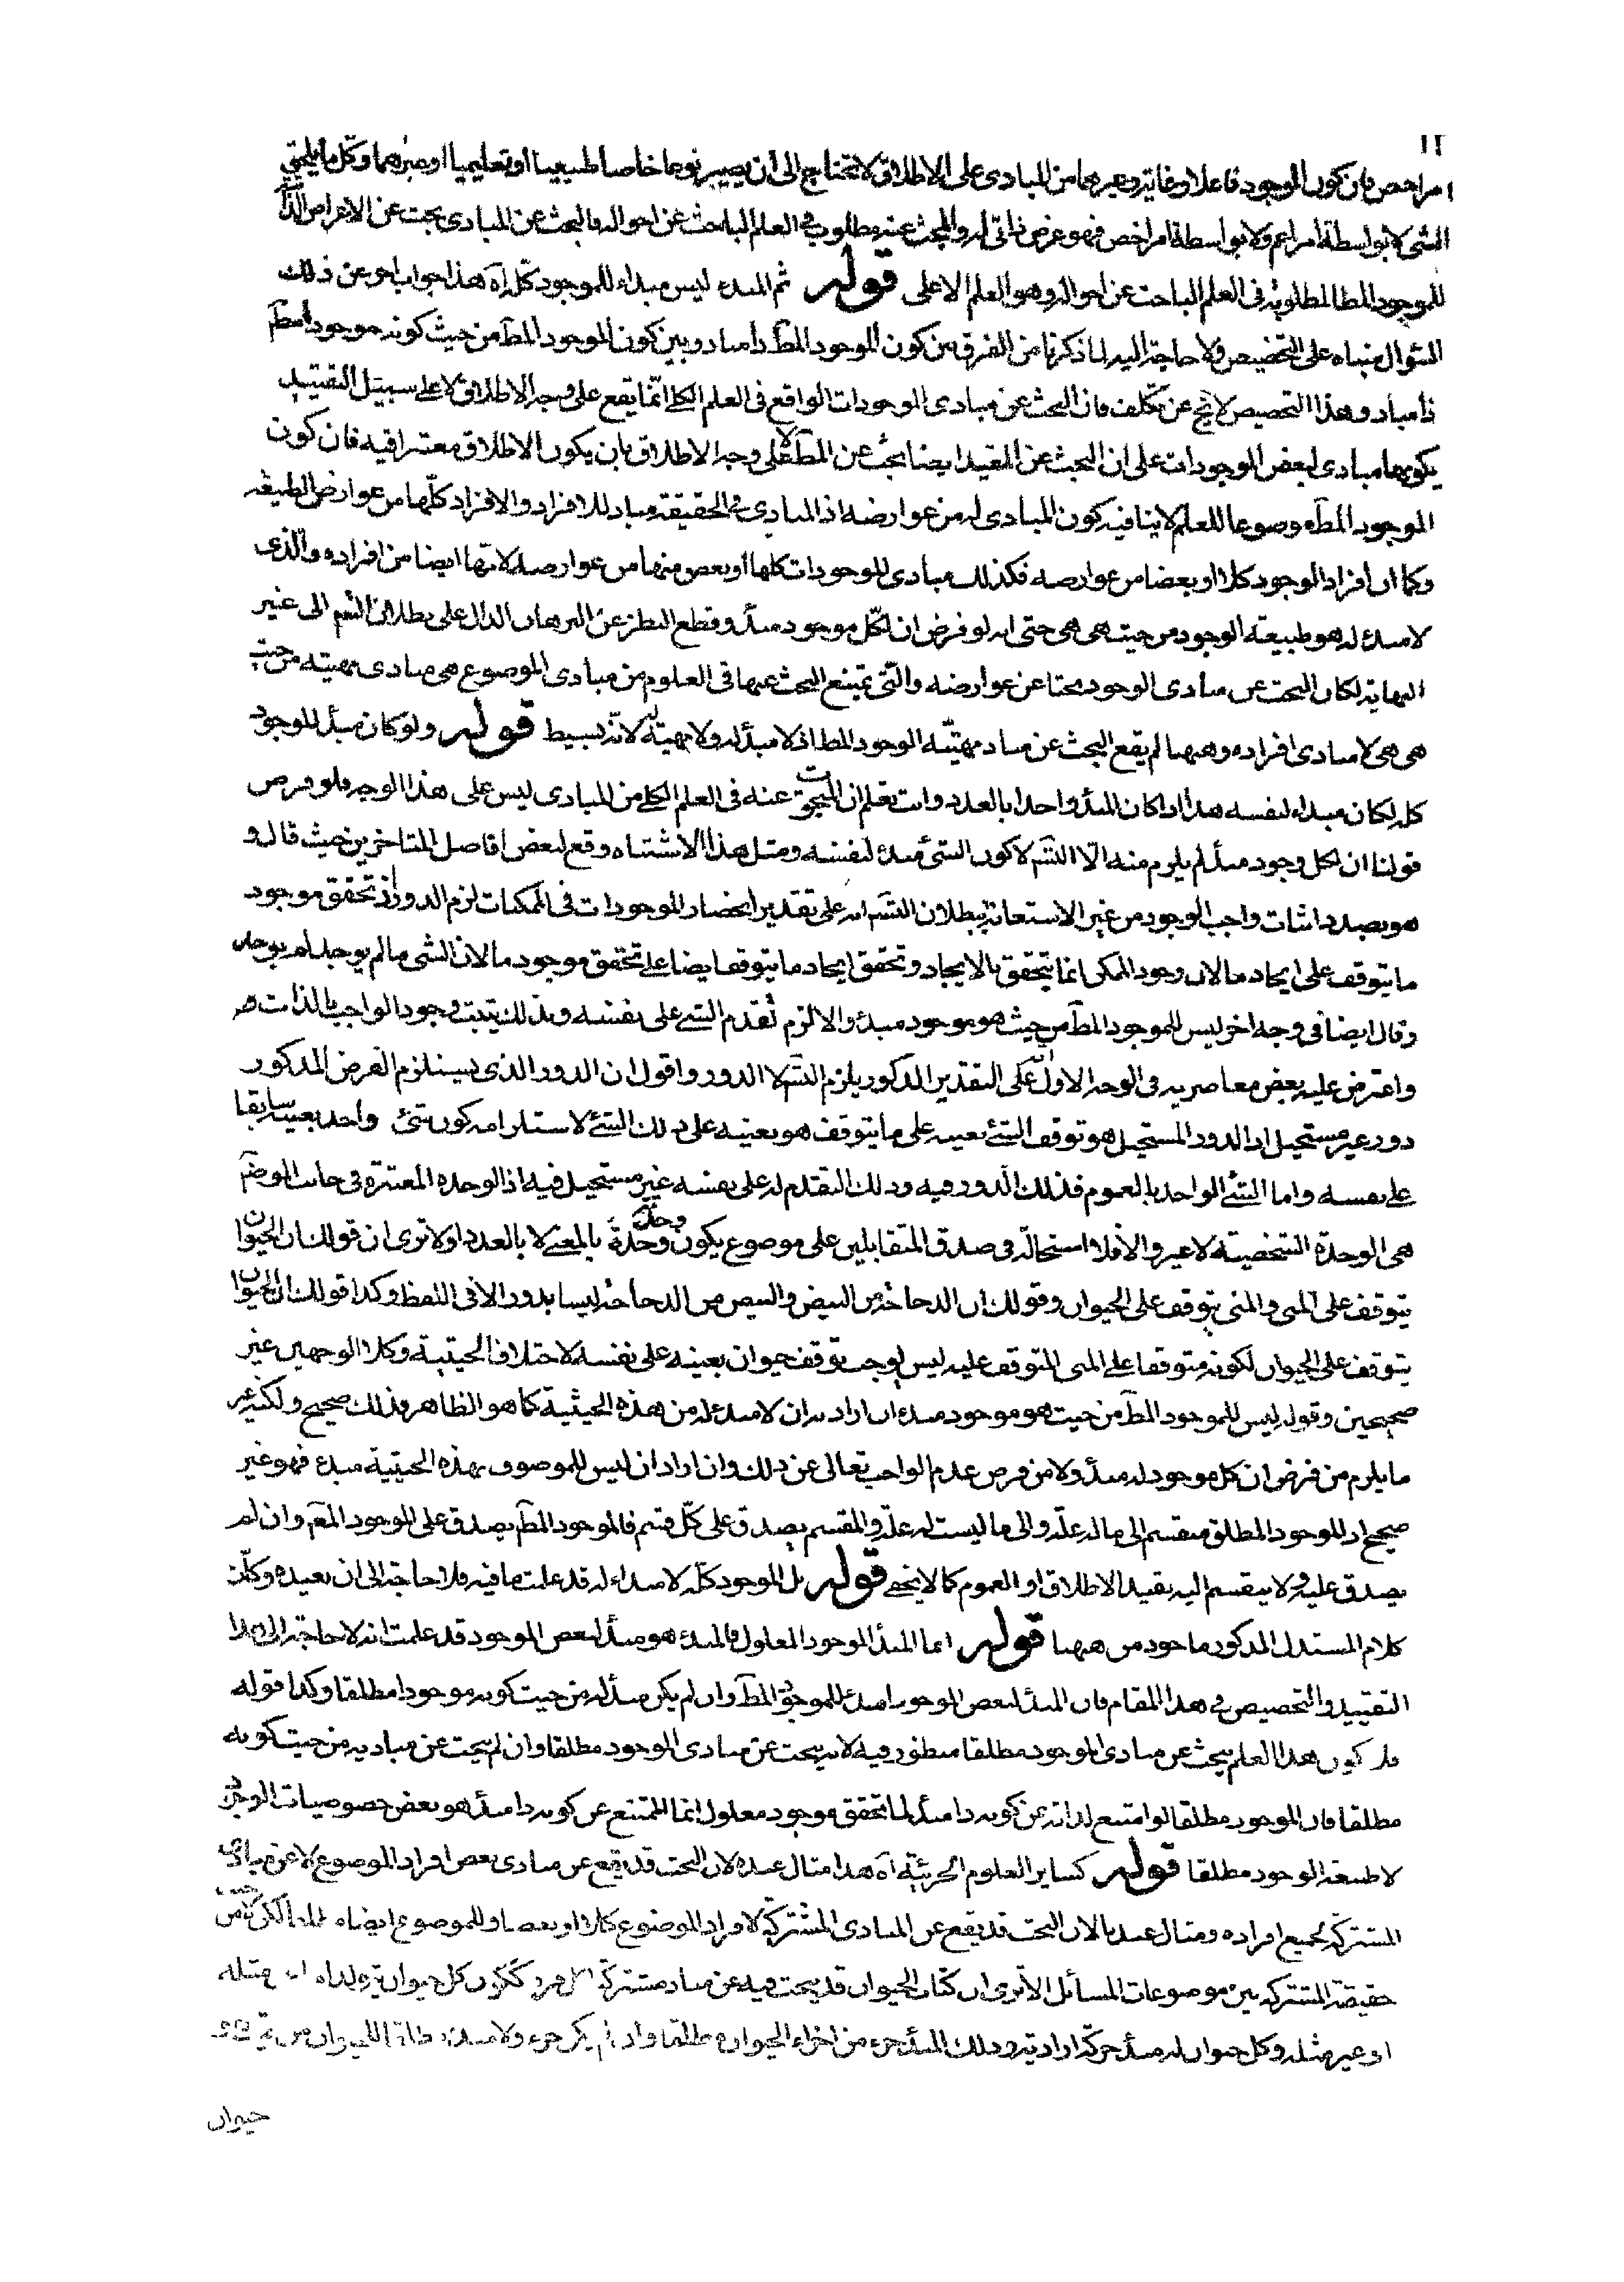 ١٢
امر اخص فان كون الموجود فاعلا او غاية وغيرهما من المبادى على الاطلاق لا تحتاج الى أن يصير نوعا خاصا طبيعيا او تعليميا او غيرهما وكل ما يلحق
الشى لا بواسطة امر اعم ولا بواسطة امر اخص فهو عرض ذاتى له والمبحث عنه مطلوب فى العلم الباحث عن احواله فالبحث عن المبادى بحث عن الاعراض الذاتية
للموجود المط المطلوبة فى العلم الباحث عن احواله وهو العلم الاعلى قوله ثم المبدء ليس مبداء للموجود كله اه هذا جواب اخر عن ذلك
السؤال مبناه على التخصيص ولا حاجة اليه لما ذكرنا من الفرق بين كون الموجود المط ذا مباد وبين كون الموجود المط من حيث كونه موجودا مط
ذا مباد وهذا التخصيص لا يخ عن تكلف فان البحث عن مبادى الموجودات الواقع فى العلم الكلى انما يقع على وجه الاطلاق لا على سبيل التقييد
بكونها مبادى لبعض الموجودات على ان البحث عن المقيد ايضا بحث عن المط لا على وجه الاطلاق بان يكون الاطلاق معتبرا فيه فان كون
الموجود المط موضوعا للعلم لا ينافيه كون المبادى له من عوارضه اذ المبادى فى الحقيقة مباد للافراد والافراد كلها من عوارض الطبيعة
وكما ان افراد الموجود كلا او بعضا من عوارضه فكذلك مبادى الموجودات كلها او بعض منها من عوارضه لانها ايضا من افراده والذى
لا مبدء له هو طبيعة الوجود من حيث هى هى حتى انه لو فرض ان لكل موجود مبدء وقطع النظر عن البرهان الدال على بطلان التس الى غير
النهاية لكان البحث عن مبادى الوجود بحثا عن عوارضه والتى يمتنع البحث عنها فى العلوم من مبادى الموضوع هى مبادى مهيته من حيث
هى هى لا مبادى افراده وههنا لم يقع البحث عن مباد مهيته الوجود المط اذ لا مبدأ له ولا مهية له لانه بسيط قوله ولو كان مبدأ للموجود
كله لكان مبداء لنفسه هذا اذا كان المبدأ واحدا بالعدد وانت تعلم ان المبحوث عنه فى العلم الكلى من المبادى ليس على هذا الوجه فلو فرض
قولنا ان لكل وجود مبدأ لم يلزم منه الا التس لا كون الشئ مبدء لنفسه ومثل هذا الاشتباه وقع لبعض افاضل المتاخرين حيث قال و
هو بصدد اثبات واجب الوجود من غير الاستعانة ببطلان التس انه على تقدير انحصار الموجودات فى الممكنات لزم الدور اذ تحقق موجود
ما يتوقف على ايجاد ما لان وجود الممكن انما يتحقق بالايجاد وتحقق ايجاد ما يتوقف ايضا على تحقق موجود ما لان الشى ما لم يوجد لم يوجد
وقال ايضا فى وجه اخر ليس للموجود المط من حيث هو موجود مبدء والا لزم تقدم الشئ على نفسه وبذلك يثبت وجود الواجب بالذات هـ
واعترض عليه بعض معاصريه فى الوجه الاول ان على التقدير المذكور يلزم التس لا الدور واقول ان الدور الذى يستلزم الفرض المذكور
دور غير مستحيل اذ الدور المستحيل هو توقف الشئ بعينه على ما يتوقف هو بعينه على ذلك الشئ لاستلزامه كون شئ واحد بعينه سابقا
على نفسه واما الشئ الواحد بالعموم فذلك الدور فيه وذلك التقدم له على نفسه غير مستحيل فيه اذ الوحدة المعتبرة فى جانب الموضوع
هى الوحدة الشخصية لا غير والا فلا استحالة فى صدق المتقابلين على موضوع يكون وحدته وحدة بالمعنى لا بالعدد او لا ترى ان قولك ان الحيوان
يتوقف على المنى والمنى يتوقف على الحيوان وقولك ان الدجاجة من البيض والبيض من الدجاجة ليسا بدور الا فى اللفظ وكذا قولك ان الحيوان
يتوقف على الحيوان لكونه متوقفا على المنى المتوقف عليه ليس يوجب توقف حيوان بعينه على نفسه لاختلاف الحيثية وكلا الوجهين غير
صحيحين وقوله ليس للموجود المط من حيث هو موجود مبدء ان اراد به ان لا مبدء له من هذه الحيثية كما هو الظاهر فذلك صحيح ولكن غير
ما يلزم من فرض ان كل موجود له مبدأ ولا من فرض عدم الواجب تعالى عن ذلك وان اراد ان ليس للموصوف بهذه الحيثية مبدء فهو غير
صحيح اذ الموجود المطلق منقسم الى ما له علة والى ما ليست له علة والمقسم يصدق على كل قسم فالموجود المط يصدق على الموجود المقم وان لم
يصدق عليه ولا ينقسم اليه بقيد الاطلاق او العموم كما لا يخفى قوله بل الموجود كله لا مبداء له قد علمت ما فيه فلا حاجة الى ان نعيده وكان
كلام المستدل المذكور ماخوذ من ههنا قوله انما المبدأ للموجود المعلول فالمبدء هو مبدأ لبعض الموجود قد علمت انه لا حاجة الى هذا
التقييد والتخصيص فى هذا المقام فان المبدأ لبعض الموجود مبدء للموجود المط وان لم يكن مبدأ له من حيث كونه موجودا مطلقا وكذا قوله
فلا كون هذا العلم يبحث عن مبادى الموجود مطلقا منظور فيه لانه يبحث عن مبادى الوجود مطلقا وان لم يبحث عن مباديه من حيث كونه
مطلقا فان الموجود مطلقا لو امتنع لذاته عن كونه ذا مبدأ لما تحقق موجود معلول انما الممتنع عن كونه ذا مبدأ هو بعض خصوصيات الوجود
لا طبيعة الوجود مطلقا قوله كساير العلوم الجزئية اه هذا مثال عنده لان البحث قد يقع عن مبادى بعض افراد الموضوع لا عن مبادى
المشتركة لجميع افراده ومثال عندنا لان البحث قد يقع عن المبادى المشتركة لافراد الموضوع كلا او بعضا وللموضوع ايضا لكن لا من حيث
حقيقته المشتركة بين موضوعات المسائل الا ترى ان كتاب الحيوان قد يبحث فيه عن مباد مشتركة ككون كل حيوان مثله
او غير مثله وكل حيوان له مبدأ حركة ارادية وذلك المبدأ جزء من اجزاء الحيوان مطلقا وان لم يكن جزء ولا مبدء
حيوان